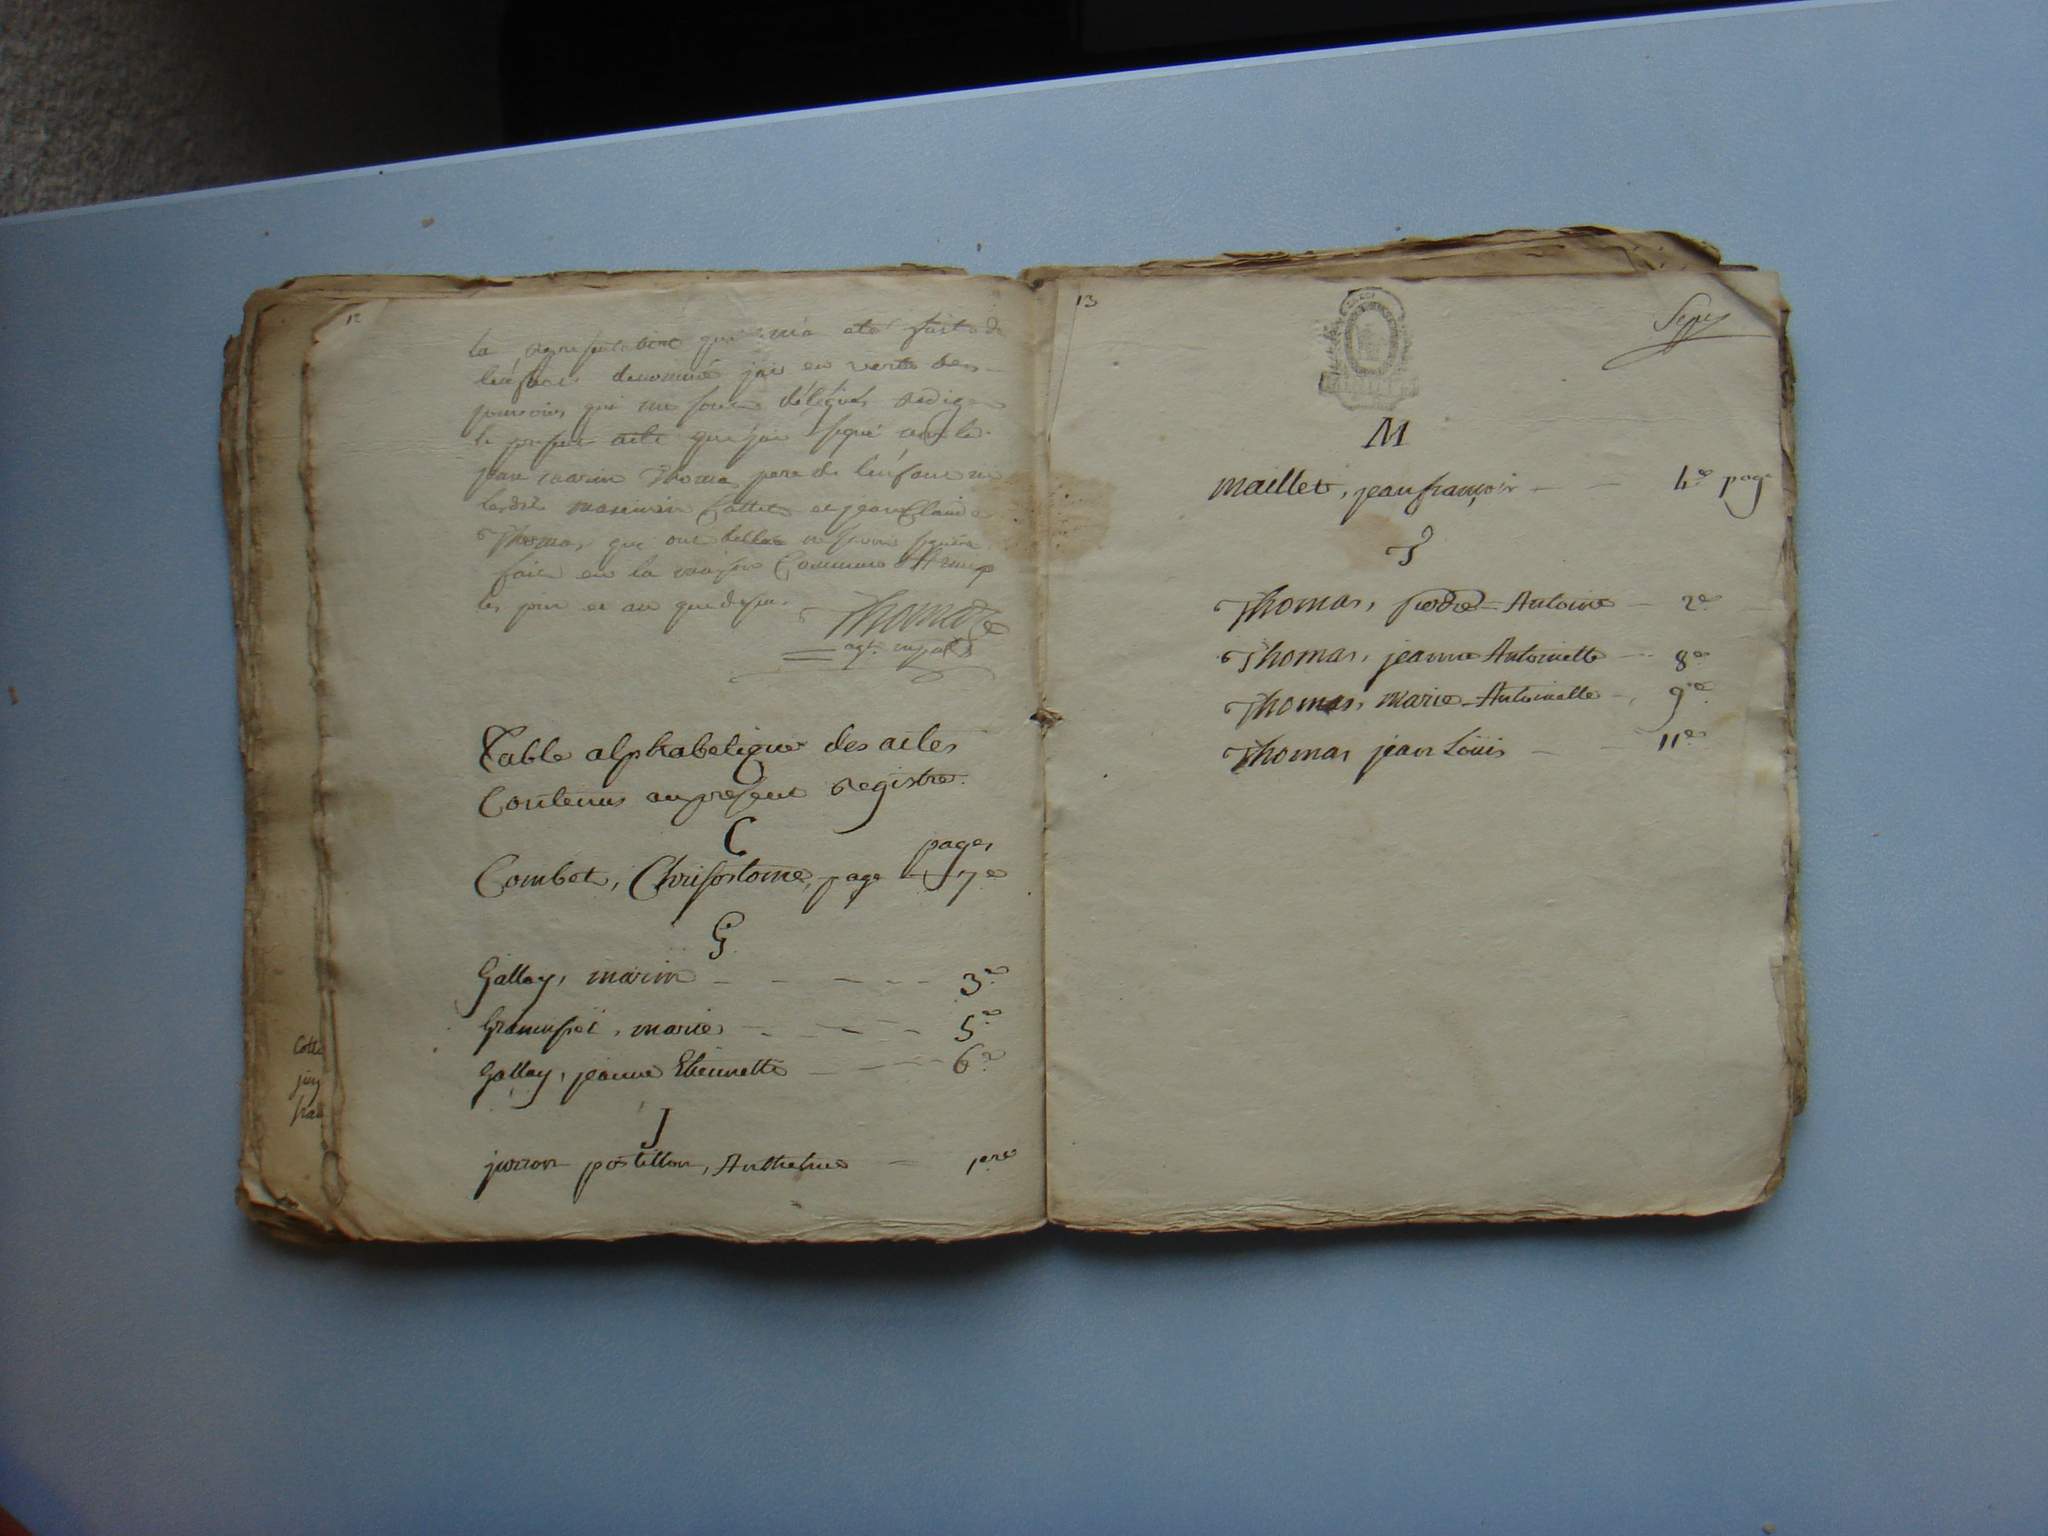 12
la representation qui m'a été faite de
l'enfant denommé j'ai en vertu des
pouvoirs qui me sont délégués redigé
le present acte que j'ai signé
jean marin Thomas pere de l'enfant
Collet et jean Claude
Thomas, qui ont
fait en la maison Commune
les jour et an que dessus.
Thomas
agt. mpal
Table alphabetique des actes
Contenus au present registre.
C
pages
Combet, Chrisostome, page 7e
G
Gallay, marin 3e
marie 5e
Gallay, jeanne Etiennette 6e
J
jurron postillon, Anthelme 1ere
Cott
13
Sept
M
maillet, jean françois 4e page
T
Thomas, pierre Antoine 2e
Thomas, jeanne Antoinette 8e
Thomas, marie Antoinette 9e
Thomas jean Loüis 11e